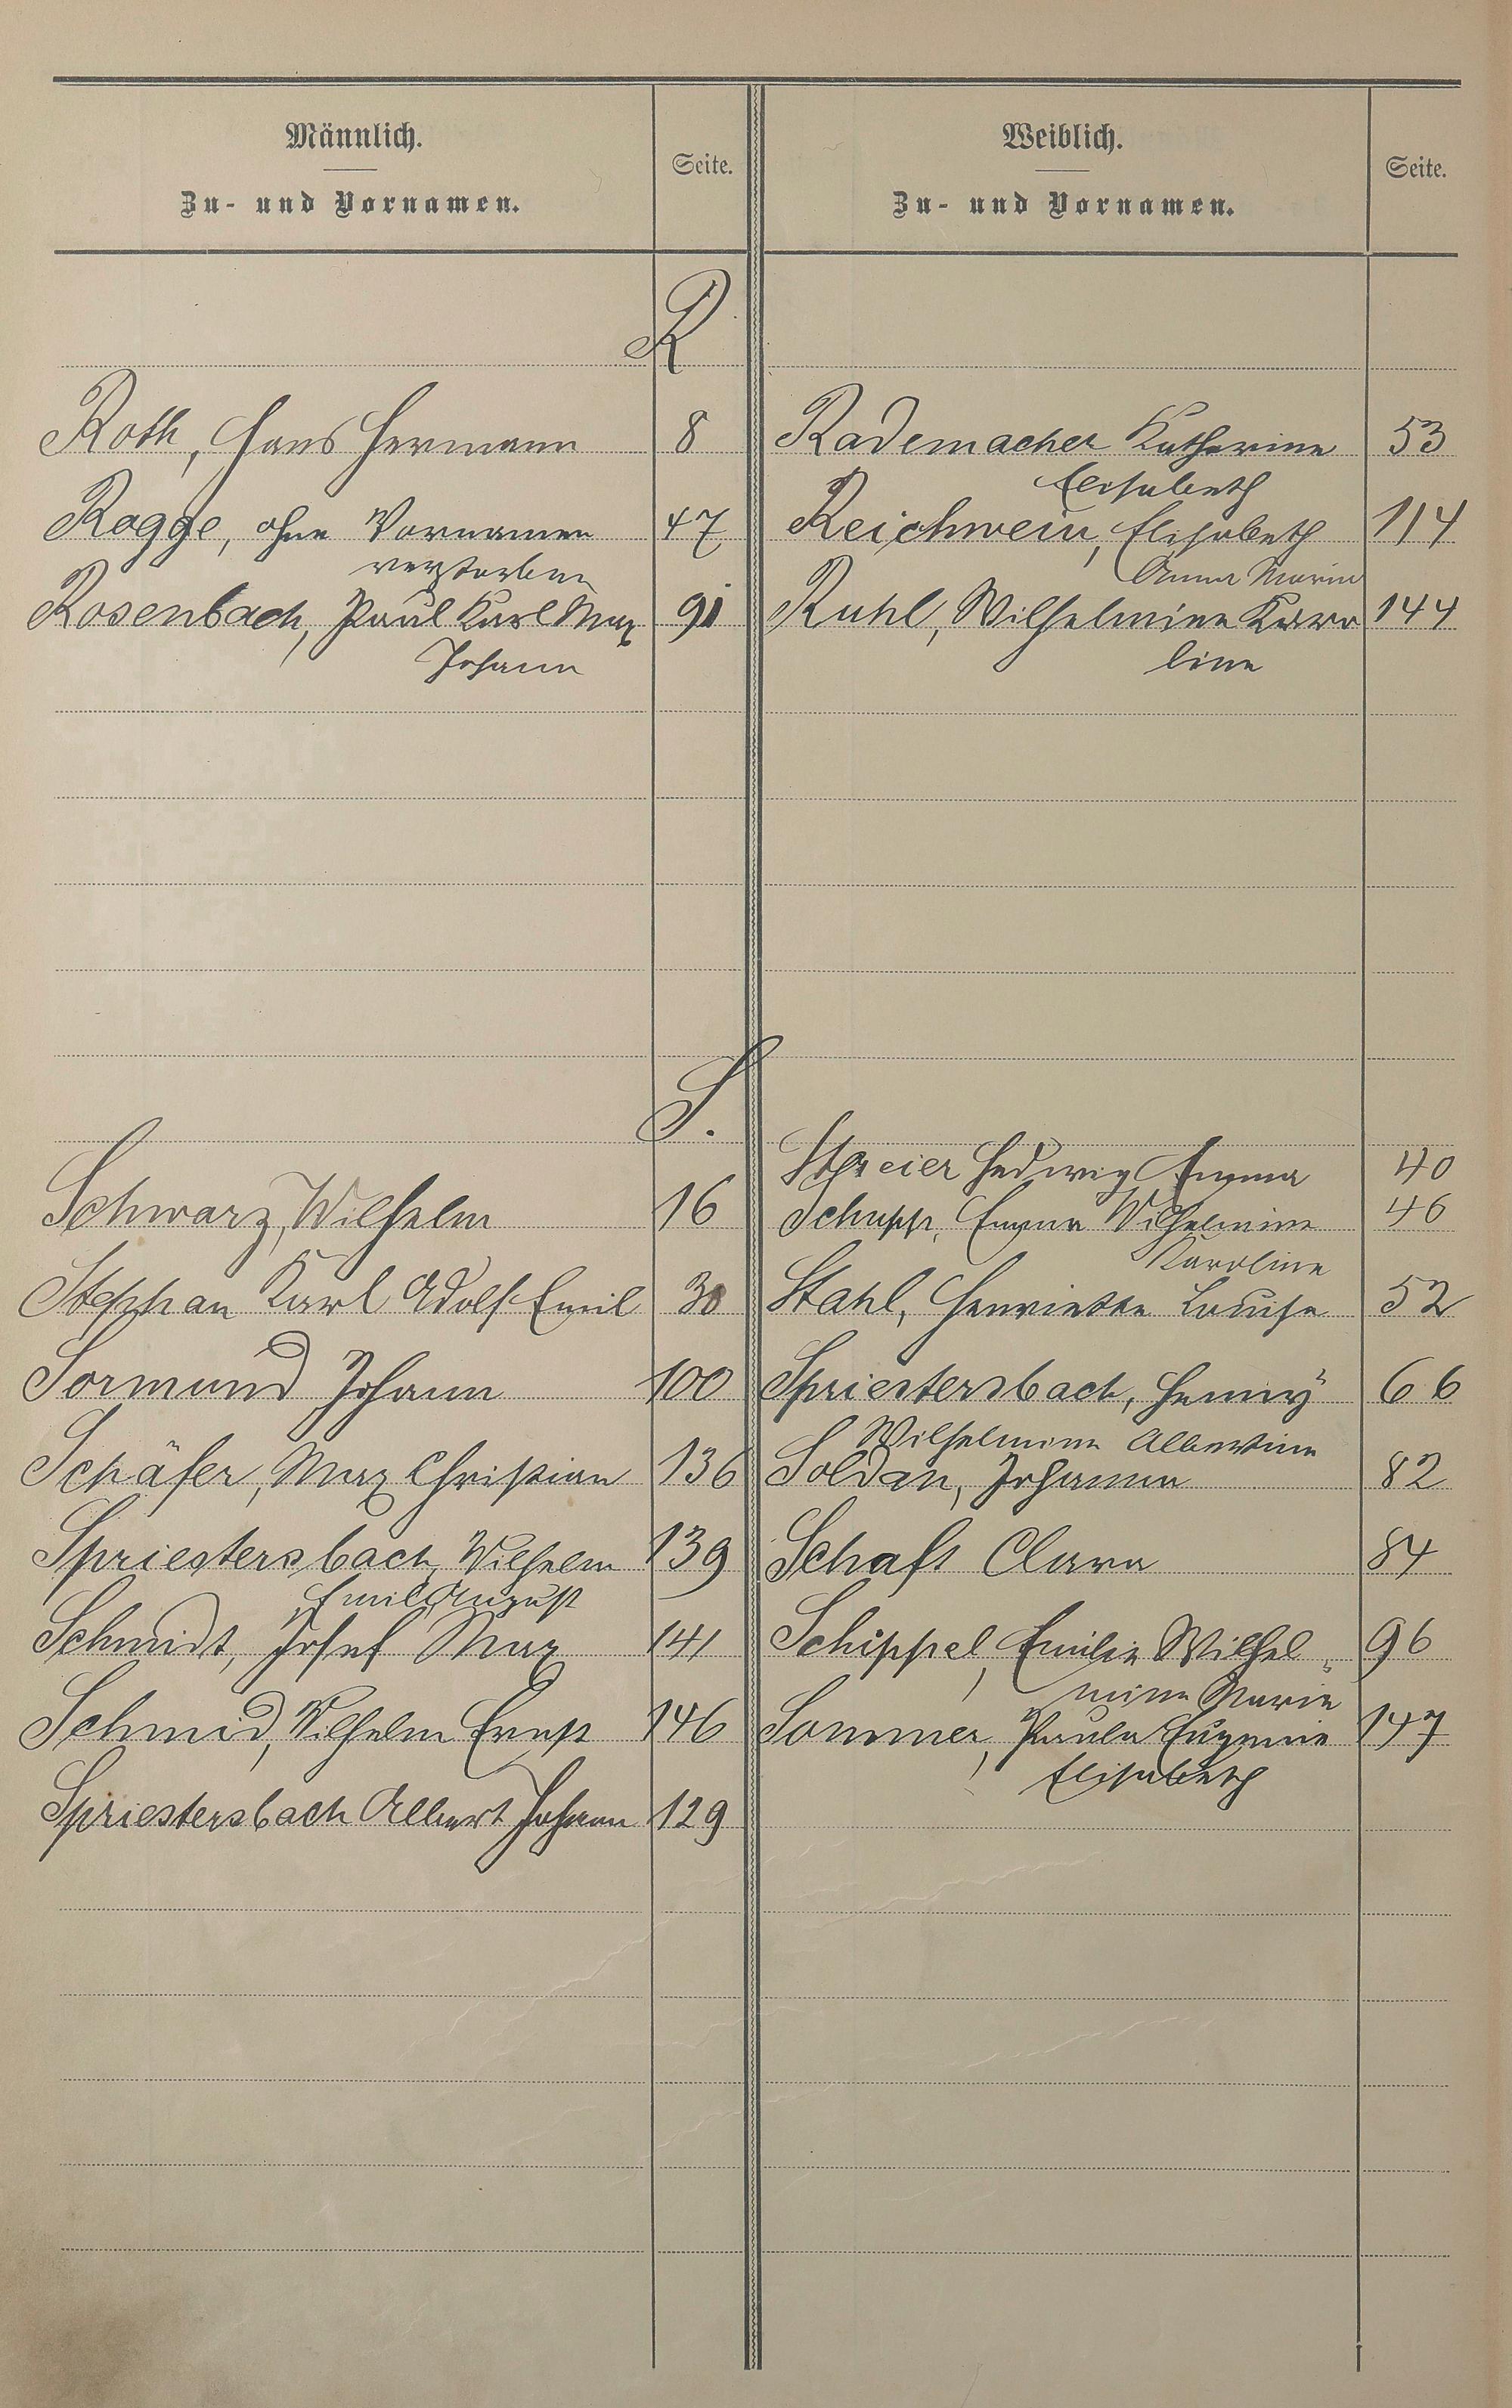 Männlich.
Zu- und Vornamen.
Seite.
Weiblich.
Zu- und Vornamen.
Seite.
R
Roth, Hans Hermann 8
Rogge, ohne Vornamen 47
verstorben
Rosenbach, Paul Karl Max 91
Johann
Rademacher Katharina 53
Elisabeth
Reichwein, Elisabeth 114
Anna Maria
Ruhl, Wilhelmine Karo 144
line
S.
Schwarz, Wilhelm 16
Stephan Karl Adolf Emil 30
Sormund Johann 100
Schäfer, Max Christian 136
Spriestersbach, Wilhelm 139
Emil August
Schmidt, Josef Max 141
Schmid, Wilhelm Ernst 146
Spriestersbach Albert Johann 129
Hedwig Emma 40
Schupp, Emma Wilhelmine 46
Karoline
Stahl, Henriette Louise 52
Spriestersbach, Henny 66
Wilhelmine Albertine
Soldan, Johanna 82
Schaft Clara 84
Schippel, Emilie Wilhel- 96
mine Marie
Sommer, Paula Eugenie 147
Elisabeth